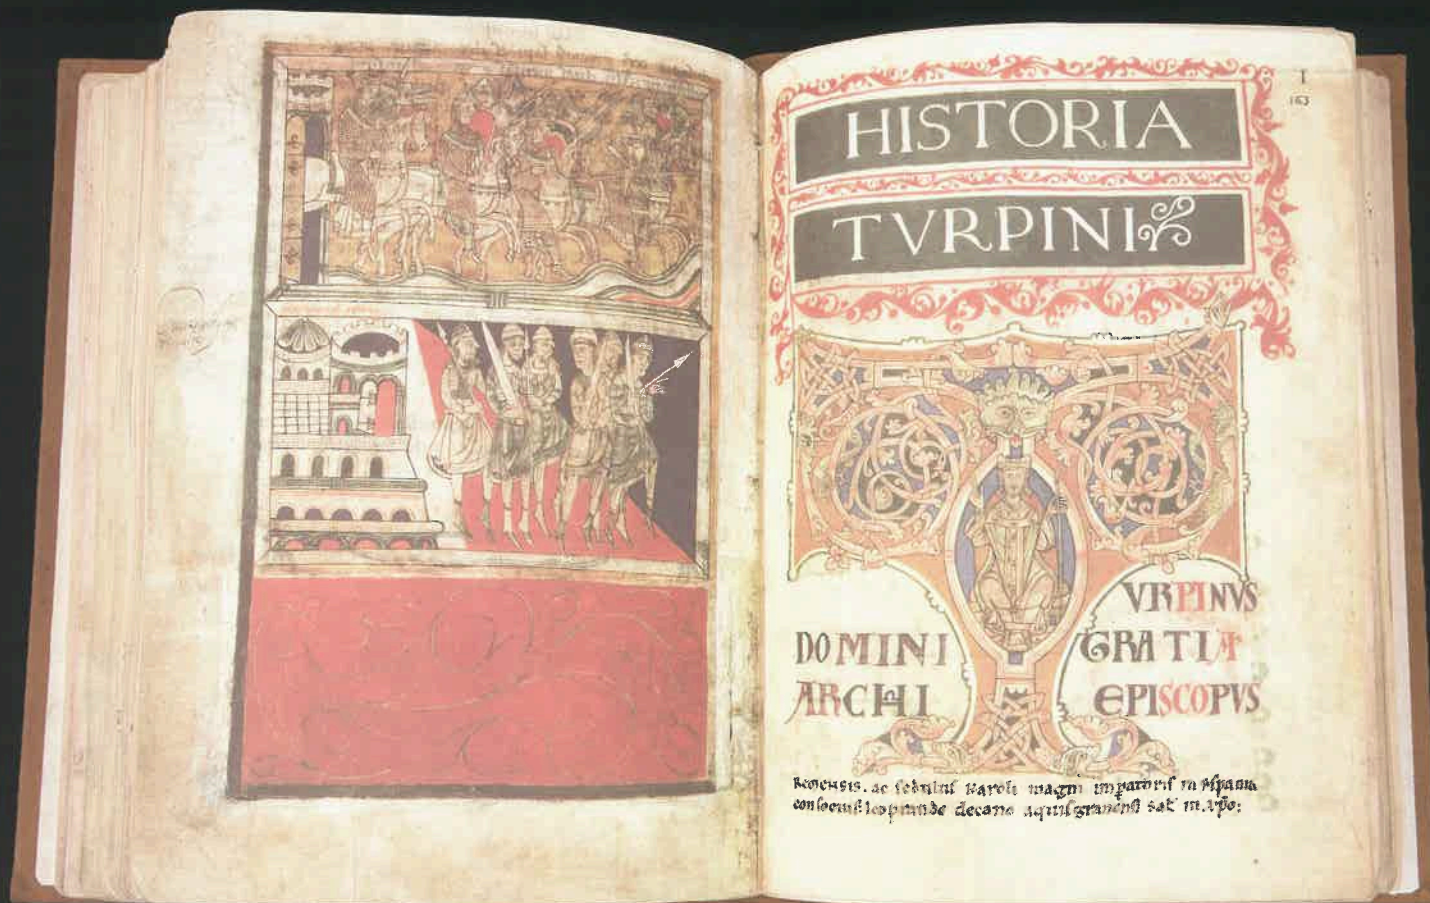 I
163
HISTORIA
TVRPINI
VRPINVS
DOMINI GRATIA
ARCHI EPISCOPVS
Remensis. ac sedulus Karoli magni imꝑatoris in yspania
consocius. leoprando decano aquisgranensi sal̅ in xp̅o: